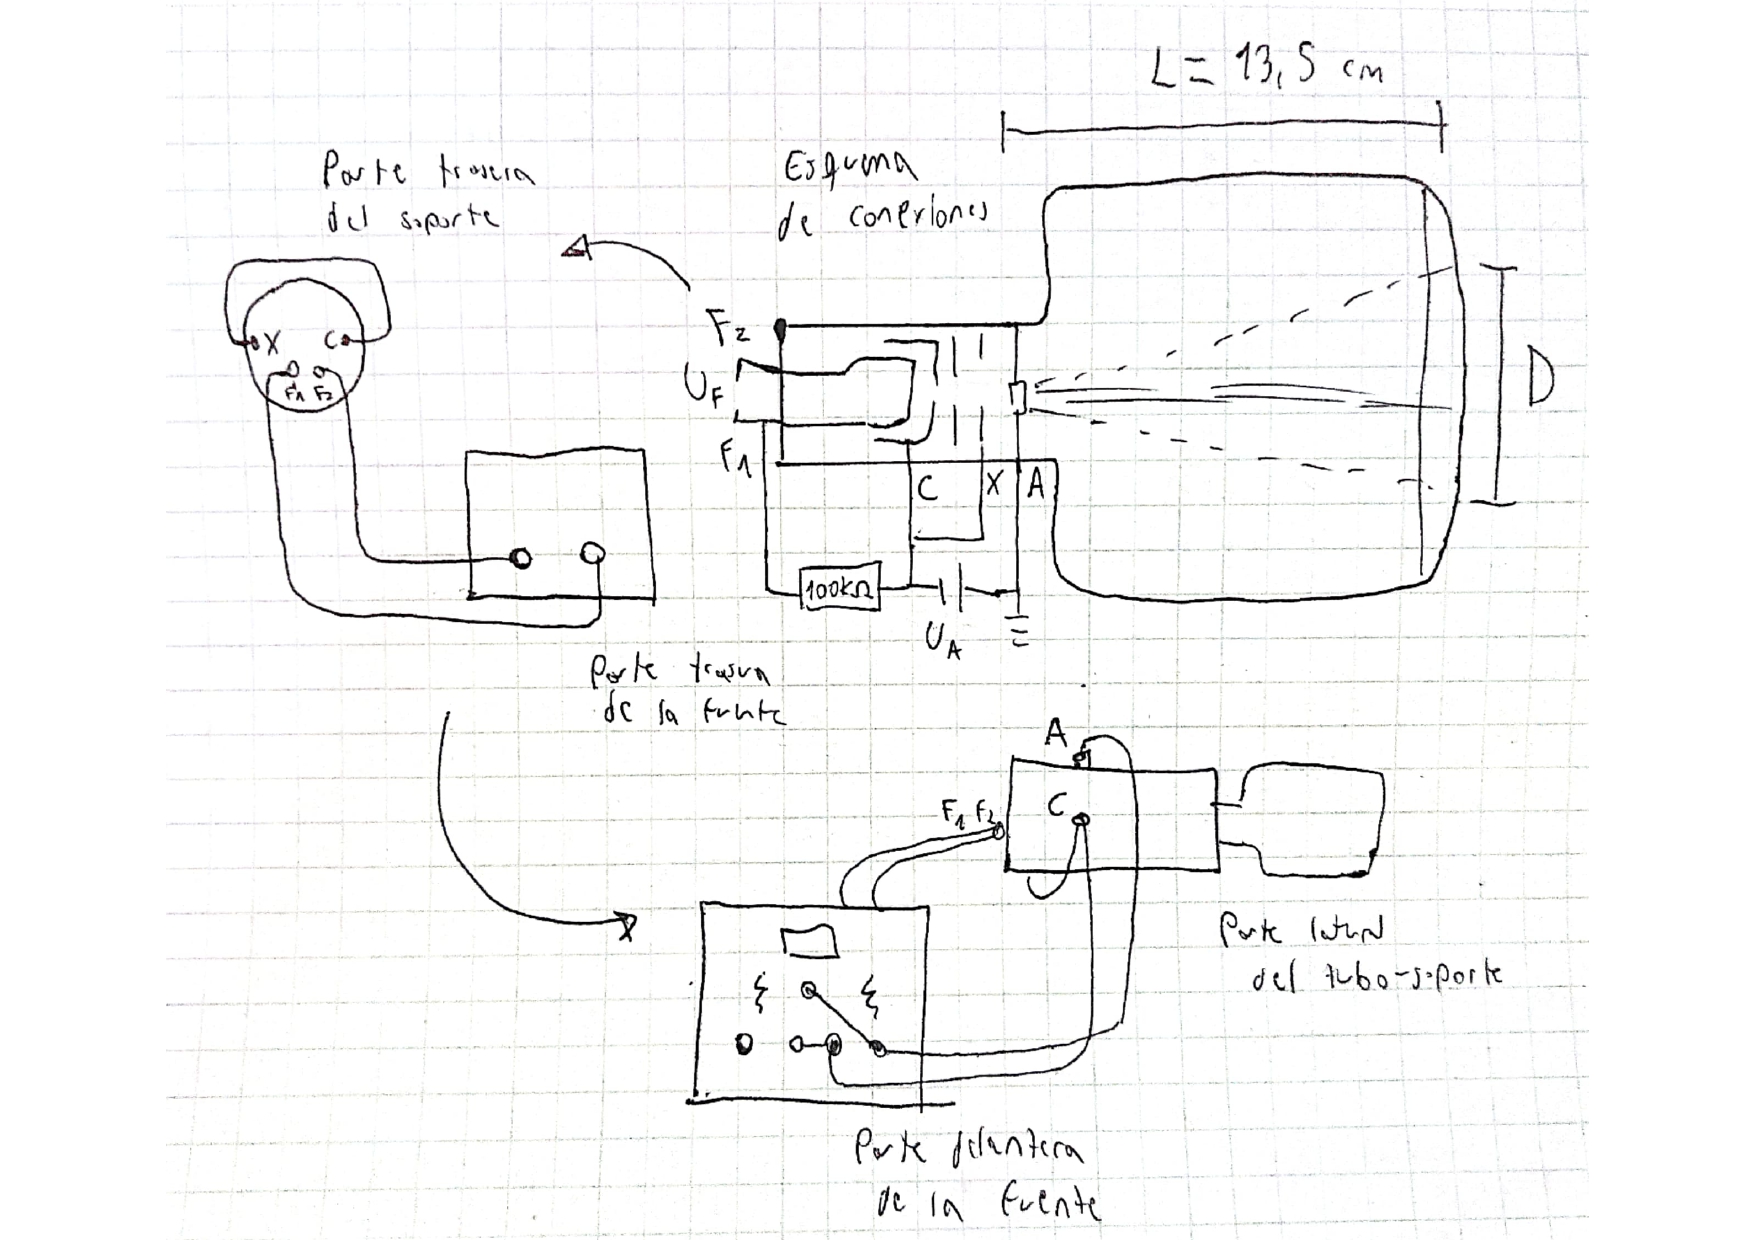 L = 13,5 cm
Parte trasera
del soporte
Esquema
de conexiones
X C
F1 F2
F2
UF
F1
C X A
100kΩ
UA
D
Parte trasera
de la fuente
A
C
F1 F2
Parte lateral
del tubo-soporte
Parte delantera
de la fuente